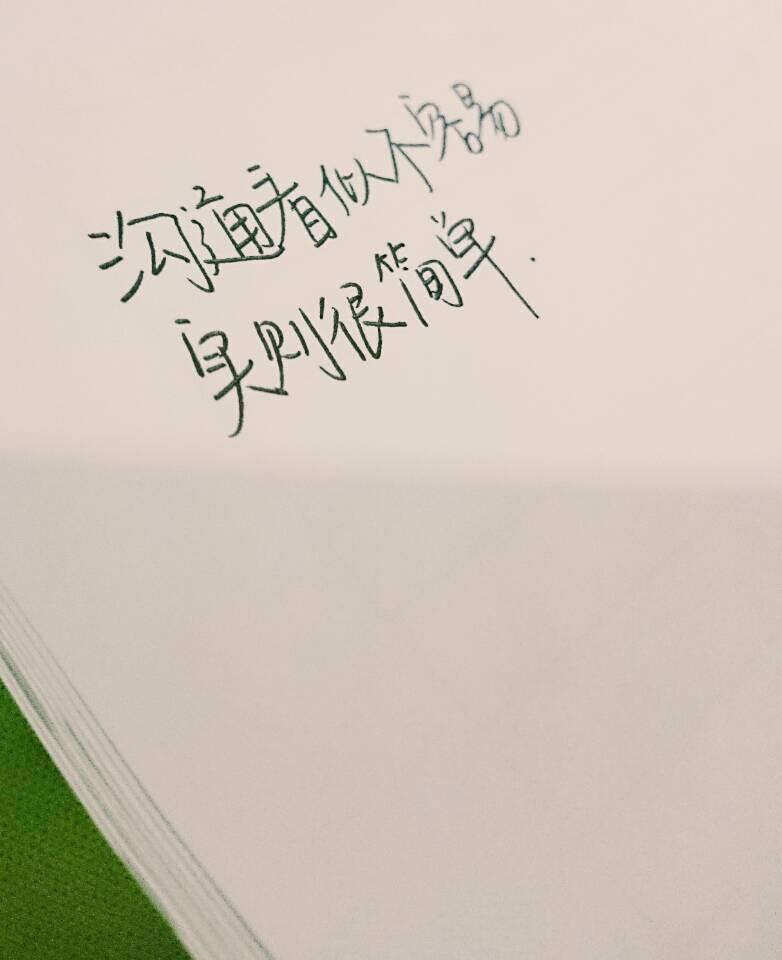 沟通看似不容易
实则很简单.